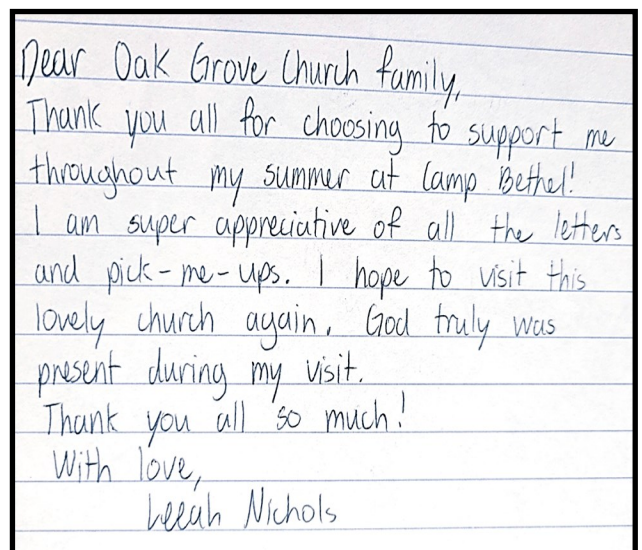 Dear Oak Grove Church family,
Thank you all for choosing to support me
throughout my summer at Camp Bethel!
I am super appreciative of all the letters
and pick-me-ups. I hope to visit this
lovely church again. God truly was
present during my visit.
Thank you all so much!
With love,
Leeah Nichols